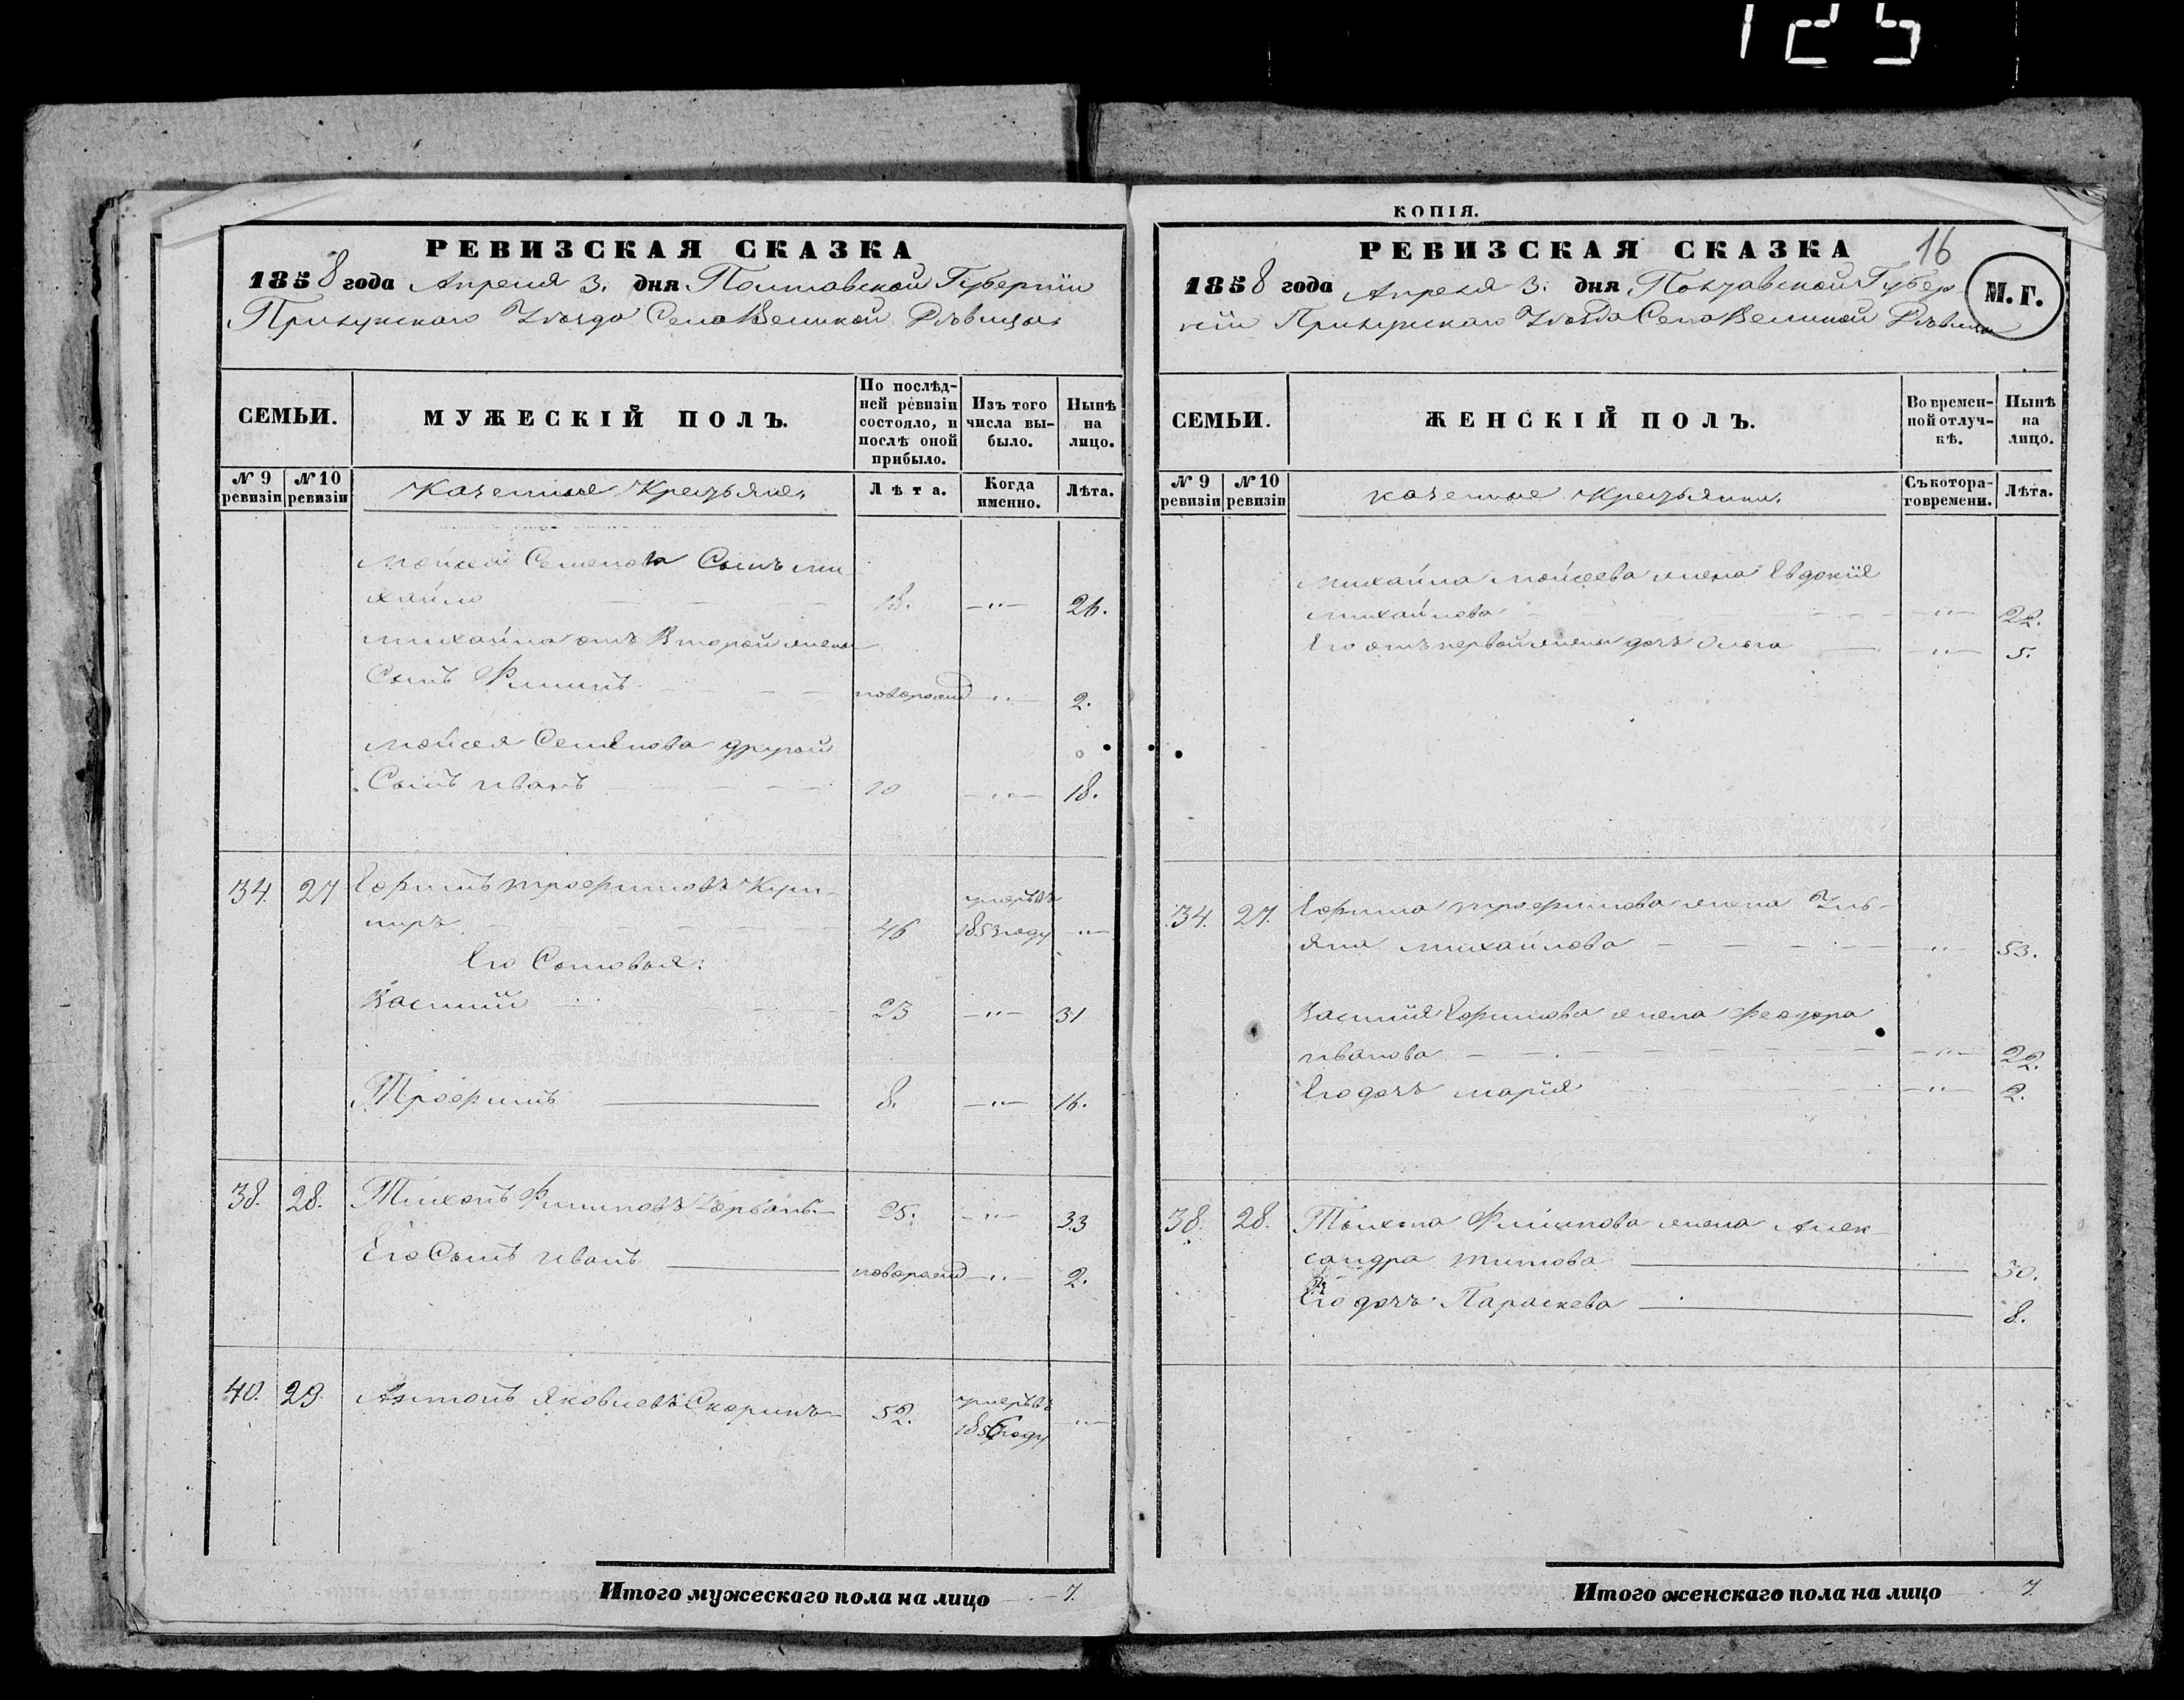 125
РЕВИЗСКАЯ СКАЗКА
1858 года Апреля 3. дня Полтавской Губернии
Прилукского Уѣзда Села Великой Дѣвицы
СЕМЬИ.
МУЖЕСКІЙ ПОЛЪ.
По послѣд-
ней ревизіи
состояло, и
послѣ оной
прибыло.
Изъ того
числа вы-
было.
Нынѣ
на
лицо.
№ 9
ревизіи
№ 10
ревизіи
Казенные Крестьяне.
Лѣта.
Когда
именно.
Лѣта.
Мойсея Семенова Сынъ Ми
хайло 18. —"— 26.
Михайла отъ Второй жены
Сынъ Филипъ новорожд —"— 2.
Мойсея Семенова другой
Сынъ Иванъ 10 —"— 18.
34. 27 Ефимъ Трофимовъ
46 умеръ въ
1853 году —"—
Его Сыновья:
Василий 23 —"— 31
Трофимъ 8. —"— 16.
38. 28. Тихонъ Филиповъ 25. —"— 33
Его Сынъ Иванъ новорожд —"— 2.
40. 29. Антонъ Яковлевъ Скорикъ 52. умеръ въ
1856 году —"—
Итого мужескаго пола на лицо 7.
КОПІЯ.
РЕВИЗСКАЯ СКАЗКА
16
М. Г.
1858 года Апреля 3. дня Полтавской Губер
нiи Прилукского Уѣзда Села Великой Дѣвицы
СЕМЬИ.
ЖЕНСКІЙ ПОЛЪ.
Во времен-
ной отлуч-
кѣ.
Нынѣ
на
лицо.
№ 9
ревизіи
№ 10
ревизіи
казенные Крестьянки.
Съ котора-
го времени.
Лѣта.
Михайла Мойсеева жена Евдокія
Михайлова —"— 22.
Его отъ первой жены дочь Ольга —"— 5.
34. 27. Ефима Трофимова жена Уль-
яна Михайлова —"— 53.
Василія Ефимова жена Феодора
Иванова —"— 22.
Его дочь Марія —"— 2.
38. 28. Тихона Филипова жена Алек
сандра Титова 30.
Его дочь Параскева 8.
Итого женскаго пола на лицо 7.